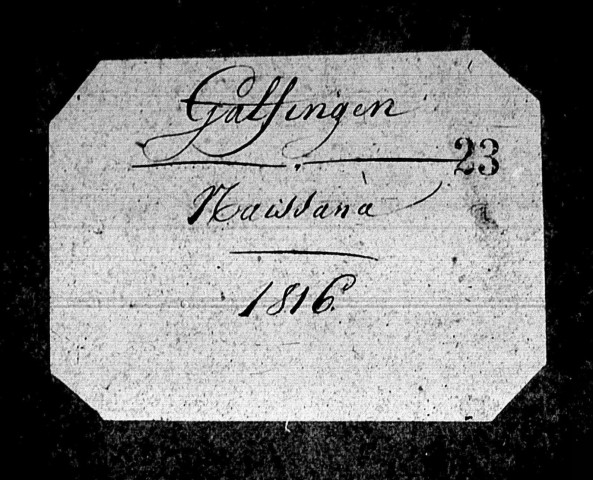 Galfingen
23
Naissanà
1816.